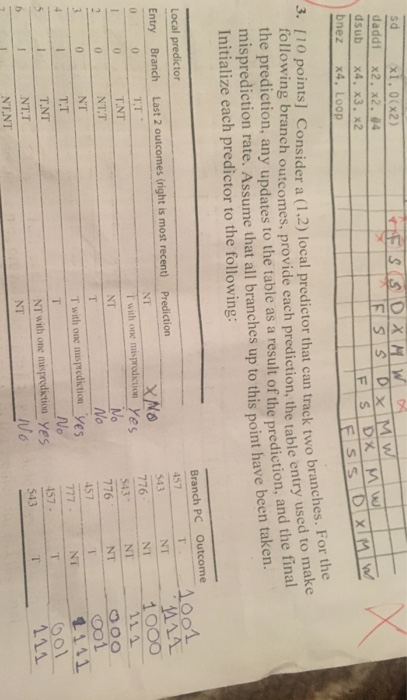 sd x1, 0(x2) F S S D X M W
daddi x2, x2, #4 F S S D X M W
dsub x4, x3, x2 F S D X M W
bnez x4, Loop F S S D X M W
3. [10 points] Consider a (1,2) local predictor that can track two branches. For the
following branch outcomes, provide each prediction, the table entry used to make
the prediction, any updates to the table as a result of the prediction, and the final
misprediction rate. Assume that all branches up to this point have been taken.
Initialize each predictor to the following:
Local predictor
Entry Branch Last 2 outcomes (right is most recent) Prediction
0 0 T,T NT No
1 0 T,NT T with one misprediction Yes
2 0 NT,T NT No
3 0 NT T No
4 1 T,T T with one misprediction Yes
5 1 T,NT T No
6 1 NT,T NT with one misprediction Yes
7 1 NT,NT NT No
Branch PC Outcome
457 T 1001
543 NT 1111
776 NT 1000
543 NT 111
776 NT 000
457 T 001
777 NT 1111
457 T 001
543 T 111